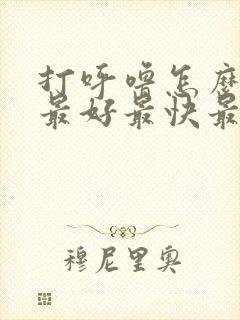 打呼噜怎麽
最好最快最
穆尼里奥